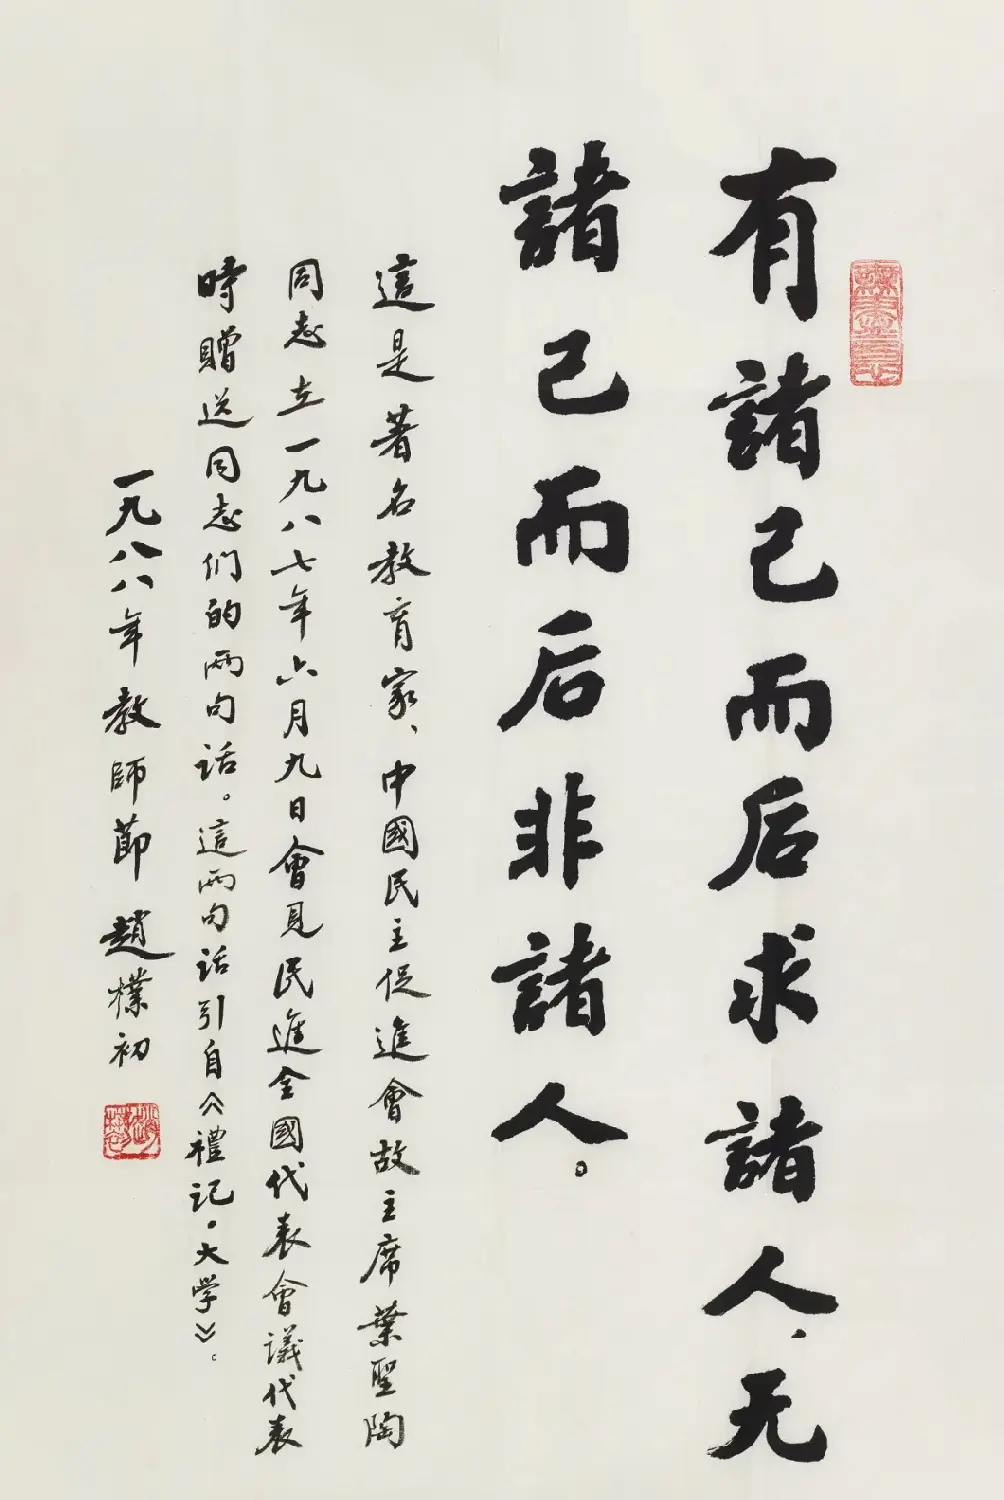 有諸己而后求諸人、无
諸己而后非諸人。
這是著名教育家、中國民主促進會故主席葉聖陶
同志在一九八七年六月九日會見民進全國代表會議代表
時贈送同志们的兩句话。這兩句话引自《禮記。大学》。
一九八八年教師節 趙樸初